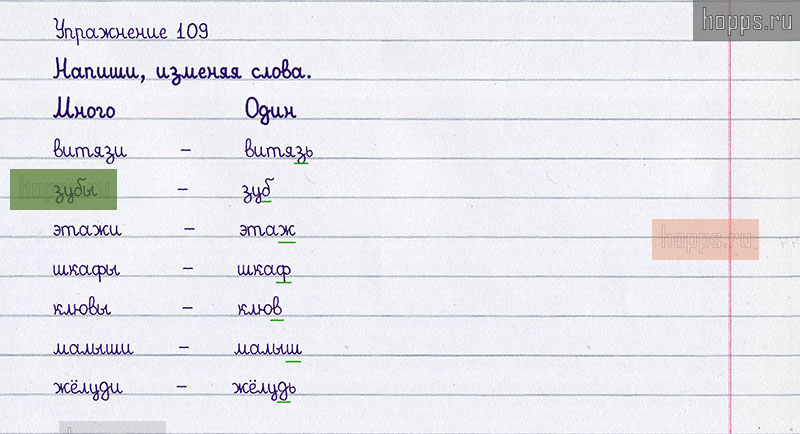 hopps.ru
Упражнение 109
Напиши, изменяя слова.
Много Один
витязи – витязь
зубы – зуб
этажи – этаж
шкафы – шкаф
hopps.ru
клювы – клюв
малыши – малыш
жёлуди – жёлудь